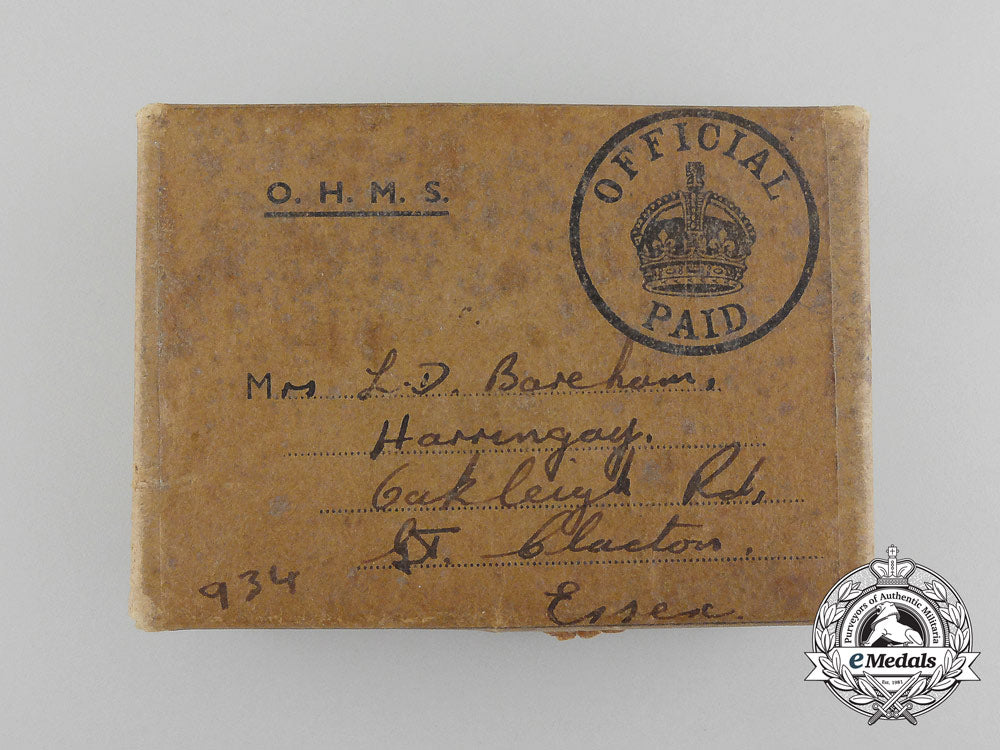 OFFICIAL
PAID
O. H. M. S.
Mrs L. D. Bareham,
Harringay.
Oakleigh Rd,
Gt. Clacton,
Essex.
934
Purveyors of Authentic Militaria
eMedals
Est. 1981